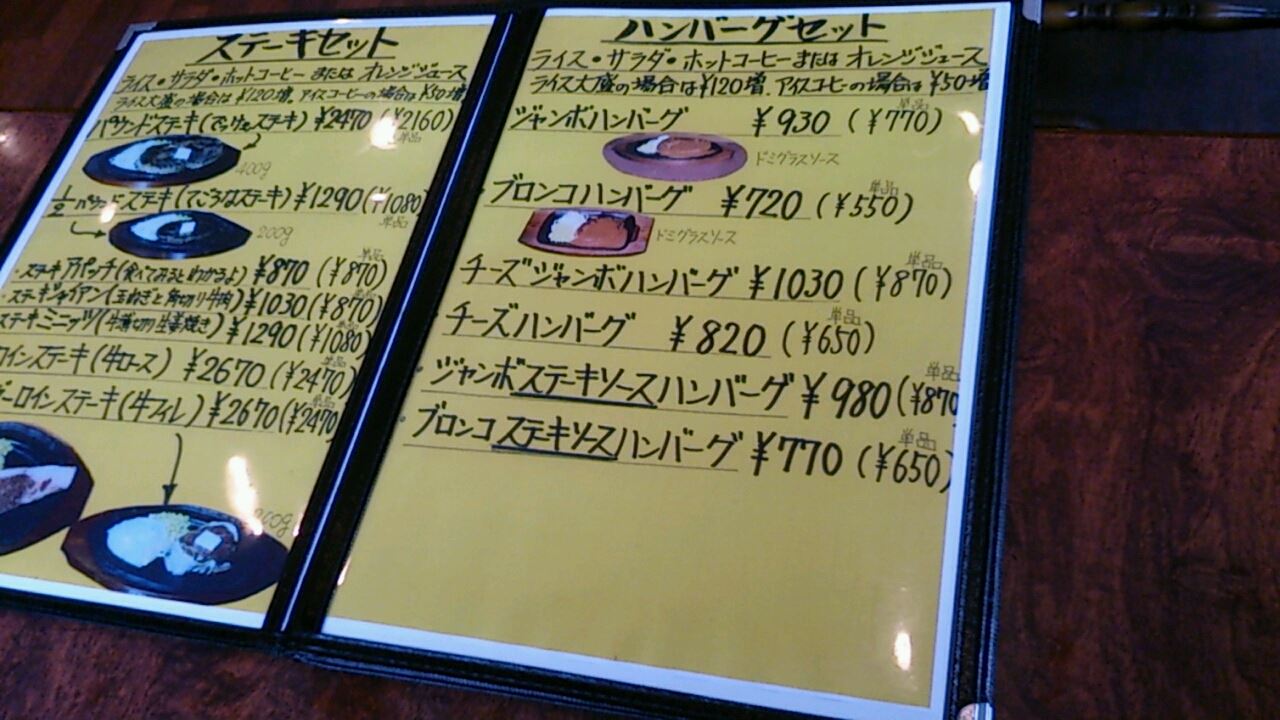 ステーキセット
ライス・サラダ・ホットコーヒー または オレンジジュース
ライス大盛の場合は¥120増。アイスコーヒーの場合は¥50増
パウンドステーキ(でっけぇステーキ) ¥2470 (¥2160)
単品
400g
1/2パウンドステーキ(てごろなステーキ) ¥1290 (¥1080)
単品
200g
単品
・ステーキアパッチ(食べてみるとわかるよ) ¥870 (¥870)
・ステーキジャイアン(玉ねぎと角切り牛肉) ¥1030 (¥870)
ステーキミニッツ(牛薄切り生姜焼き) ¥1290 (¥1080)
単品
ロインステーキ(牛ロース) ¥2670 (¥2470)
単品
ーロインステーキ(牛フィレ) ¥2670 (¥2470)
200g
ハンバーグセット
ライス・サラダ・ホットコーヒーまたは オレンジジュース
ライス大盛の場合は¥120増.アイスコーヒーの場合は ¥50増
単品
ジャンボハンバーグ ¥930 (¥770)
ドミグラスソース
単品
・ブロンコハンバーグ ¥720 (¥550)
ドミグラスソース
単品
チーズジャンボハンバーグ ¥1030 (¥870)
単品
・チーズハンバーグ ¥820 (¥650)
単品
・ジャンボステーキソースハンバーグ ¥980 (¥870
単品
・ブロンコステーキソースハンバーグ ¥770 (¥650)